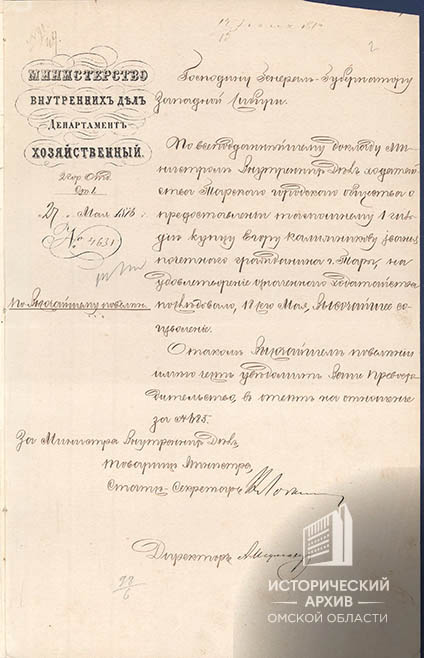 2
МИНИСТЕРСТВО
ВНУТРЕННИХЪ ДѢЛЪ
ДЕПАРТАМЕНТЪ
ХОЗЯЙСТВЕННЫЙ.
27 Мая 1876 г.
№ 4631
По Высочайшему повелѣнію
Господину Генералъ-Губернатору
Западной Сибири.
По всеподданнѣйшему докладу Ми-
нистромъ Внутреннихъ Дѣлъ ходатай-
ства Тарскаго городскаго общества о
предоставленіи тамошнему 1 гиль-
діи купцу Егору Калижникову званія
почетнаго гражданина г. Тары, на
удовлетвореніе означеннаго ходатайства
послѣдовало, Мая, Высочайшее со-
изволеніе.
О таковомъ Высочайшемъ повелѣніи
имѣю честь увѣдомить Ваше Превосхо-
дительство, въ отвѣтъ на отношеніе
за № 685.
За Министра Внутреннихъ Дѣлъ,
Товарищъ Министра,
Статсъ-Секретарь
Директоръ
22
6
ИСТОРИЧЕСКИЙ
АРХИВ
ОМСКОЙ ОБЛАСТИ